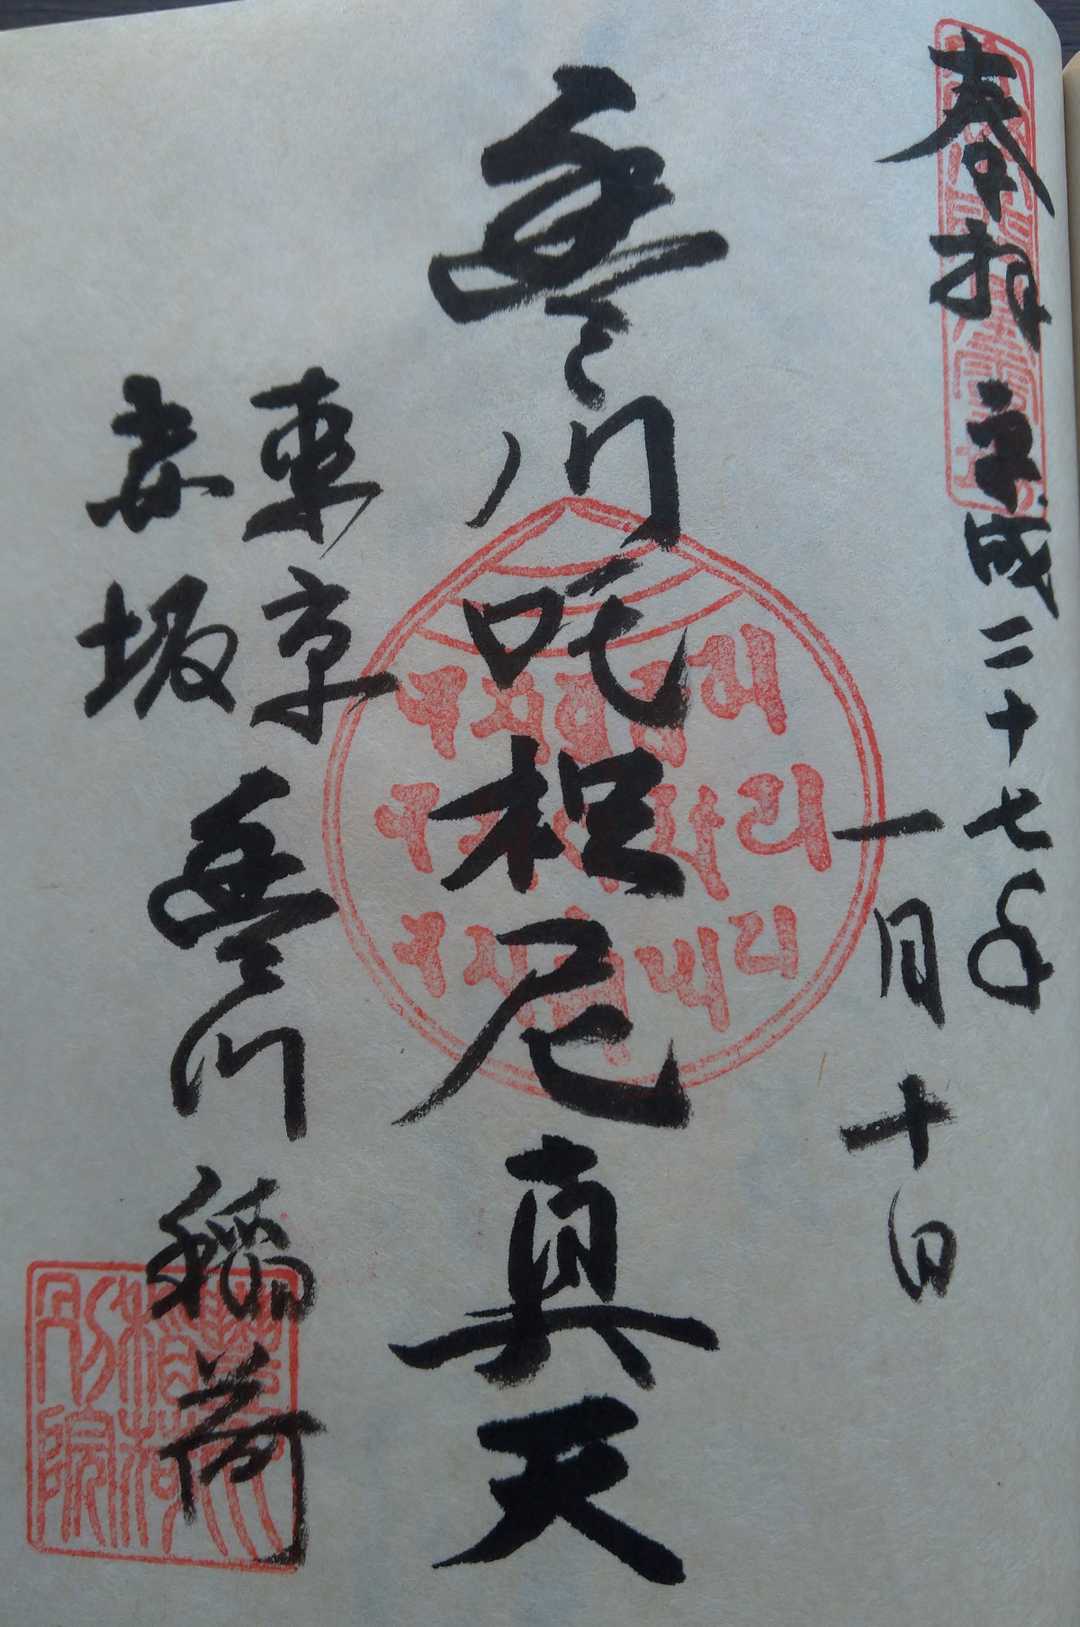 奉拝 平成二十七年
一月十日
豊川吒枳尼真天
東京
赤坂
豊川稲荷